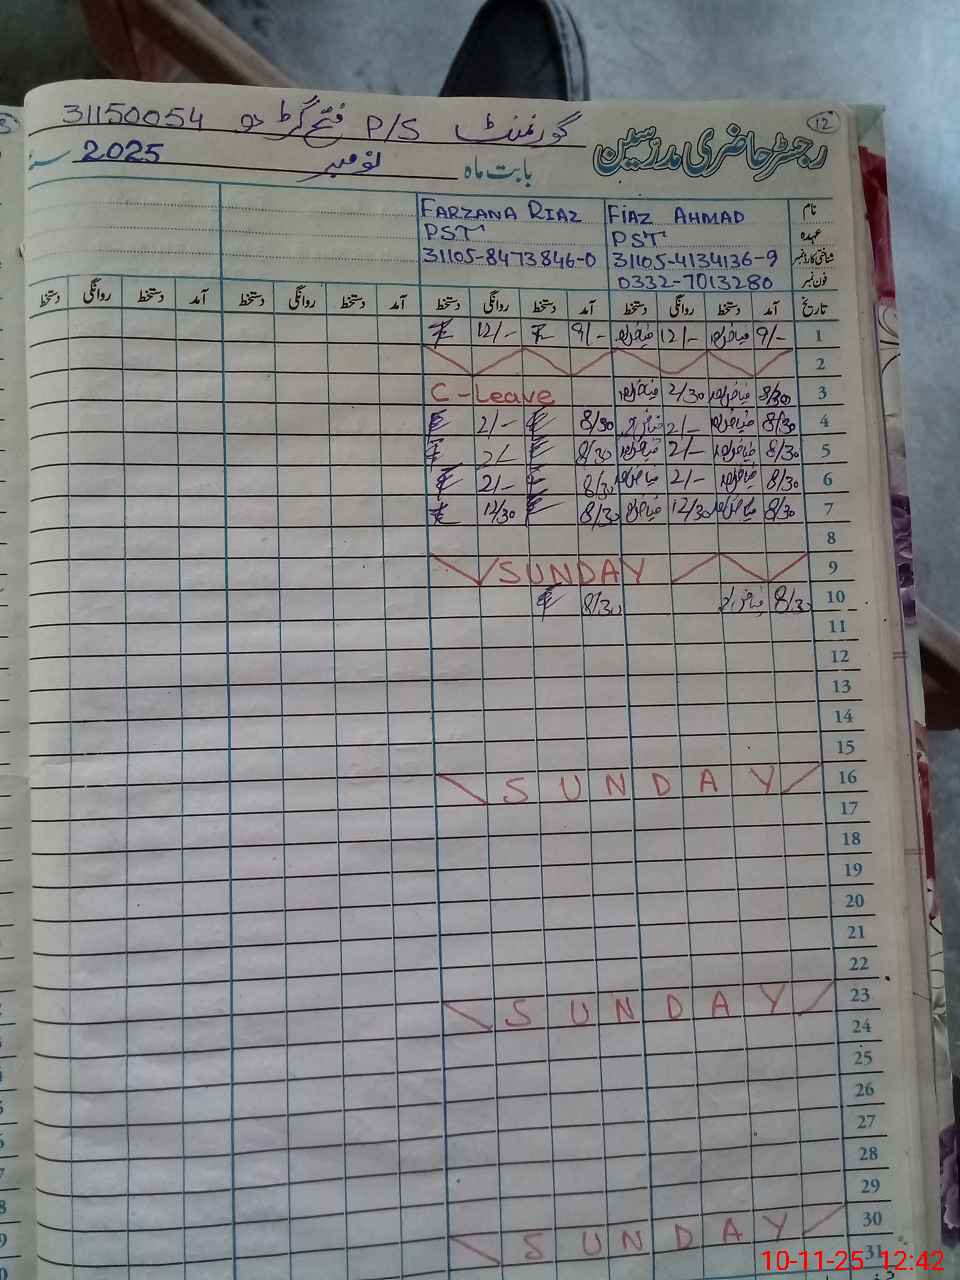 12
گورنمنٹ P/S فتح گڑھ دو 31150054
رجسٹر حاضری مدرسین
بابت ماہ نومبر 2025 سنہ
نام FIAZ AHMAD FARZANA RIAZ
عہدہ PST PST
شناختی کارڈ نمبر 31105-4134136-9 31105-8473846-0
فون نمبر 0332-7013280
تاریخ آمد دستخط روانگی دستخط آمد دستخط روانگی دستخط آمد دستخط روانگی دستخط آمد دستخط روانگی دستخط
1 9/- 12/- 9/- 12/-
2
3 8/30 2/30 C-Leave
4 8/30 2/- 8/30 2/-
5 8/30 2/- 8/30 2/-
6 8/30 2/- 8/30 2/-
7 8/30 12/30 8/30 12/30
8
9 SUNDAY
10 8/30 8/30
11
12
13
14
15
16 SUNDAY
17
18
19
20
21
22
23 SUNDAY
24
25
26
27
28
29
30 SUNDAY
31
10-11-25 12:42